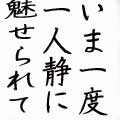 いま一度
一人静に
魅せられて